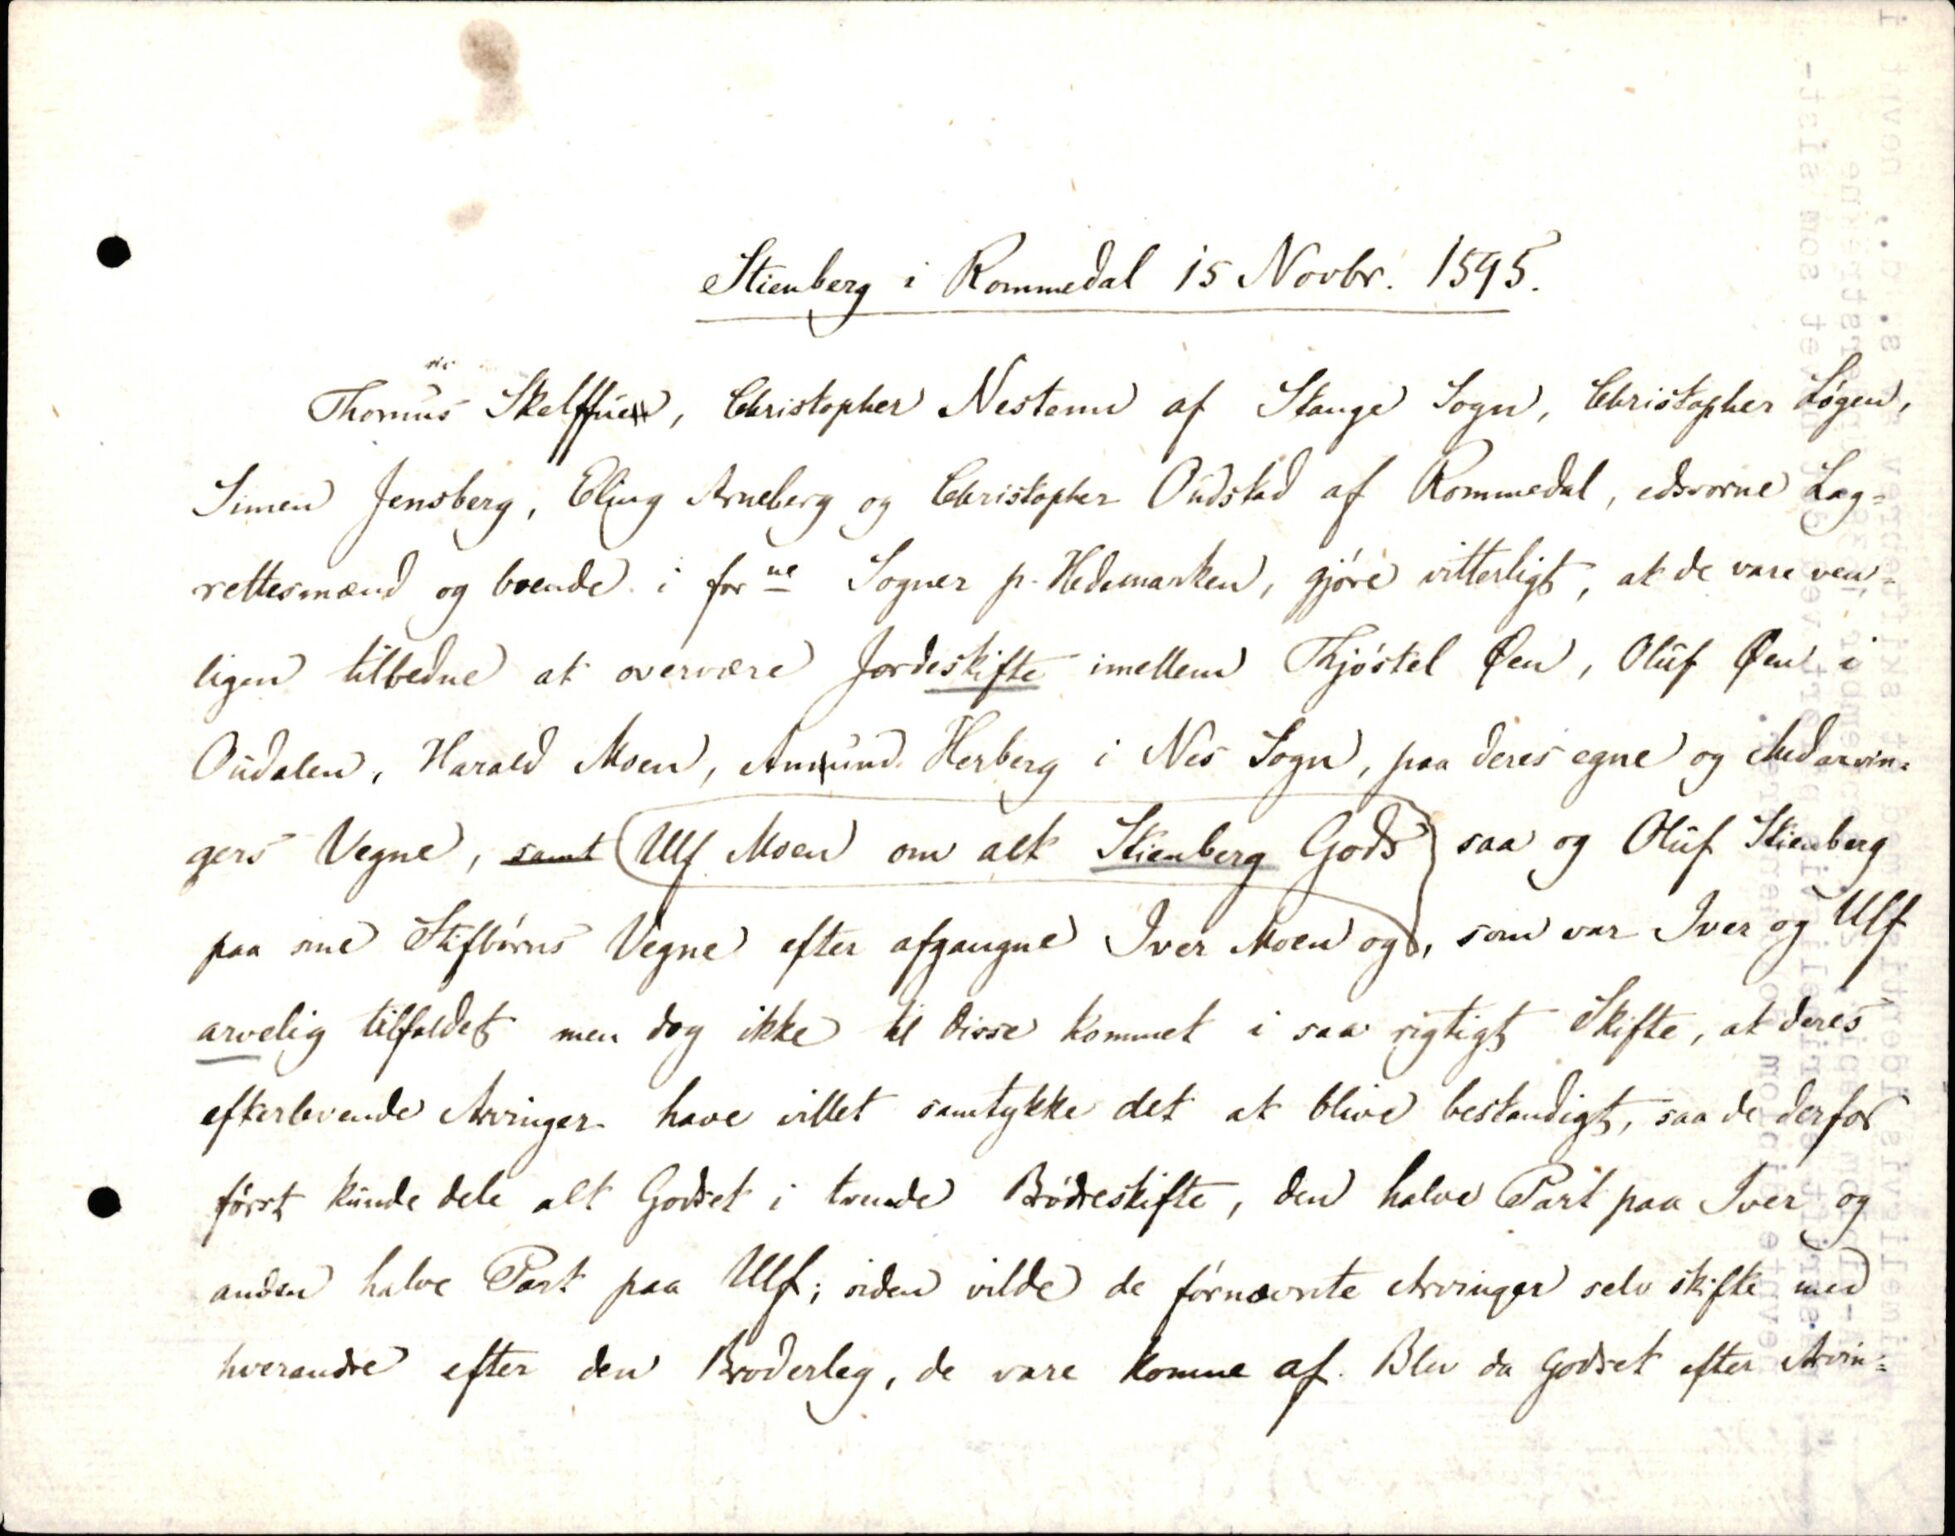 Stienberg i Rommedal 15 Novbr. 1595.
sic
Thomus Skelffue, Christopher Nestenn af Stange Sogn, Christopher Løgen,
Simen Jensberg, Eling Arneberg og Christopher Oudstad af Rommedal, edsvorne Lag=
rettesmænd og boende i forne Sogner p. Hedemarken, gjøre vitterligt, at de vare ven=
ligen tilbedne at overvære Jordeskifte imellem Thjøstel Øen, Oluf Øen i
Oudalen, Harald Moen, Amund Herberg i Nes Sogn, paa deres egne og Medarvin=
gers Vegne, samt Ulf Moen om alt Stienberg Gods saa og Oluf Stienberg
paa sine Stifbørns Vegne efter afgangne Iver Moen og, som var Iver og Ulf
arvelig tilfaldet men dog ikke til disse kommet i saa rigtigt Skifte, at deres
efterlevende Arvinger have villet samtykke det at blive bestandigt, saa de derfor
først kunde dele alt Godset i tvende Brødreskifte, den halve Part paa Iver og
anden halve Part paa Ulf; siden vilde de førnævnte Arvinger selv skifte med
hverandre efter den Broderleg, de vare komne af. Blev da Godset efter Arvin=